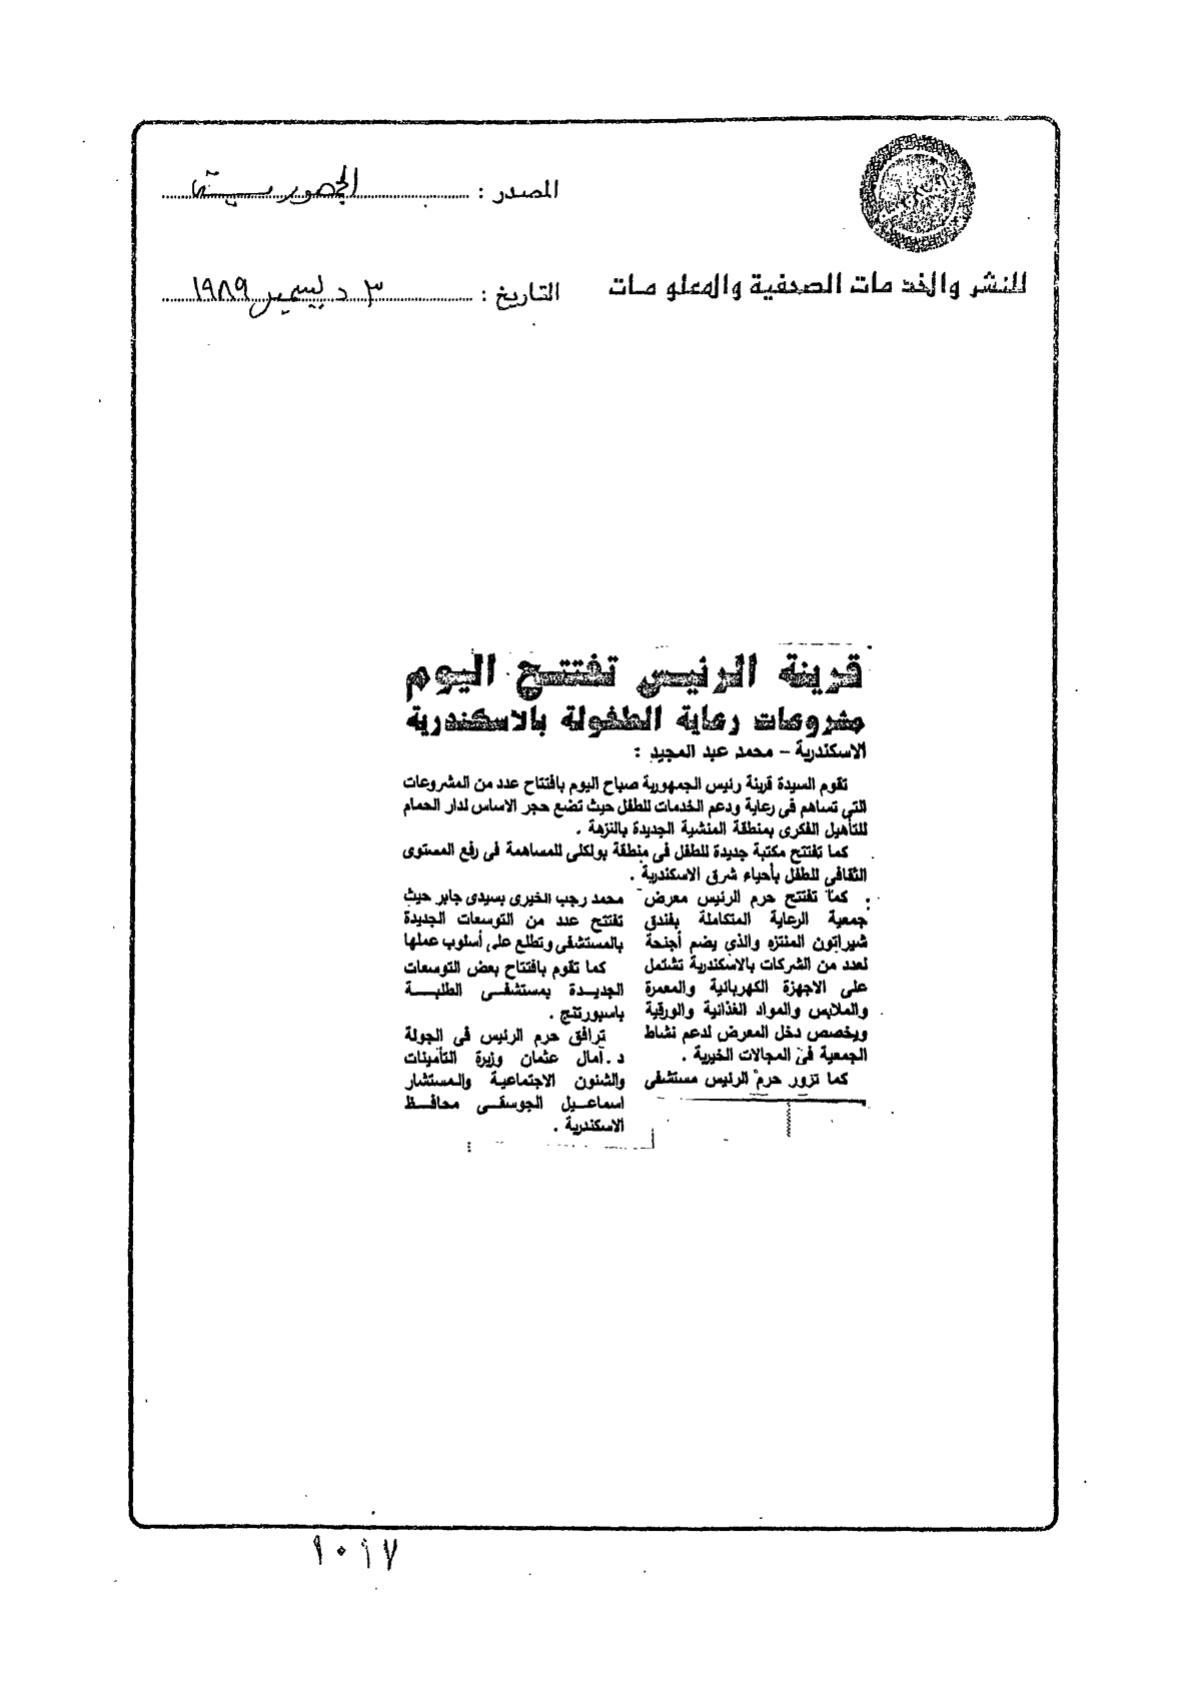 المصدر : الجمهورية
للنشر والخدمات الصحفية والمعلومات
التاريخ : ٣ ديسمبر ١٩٨٩
قرينة الرئيس تفتتح اليوم
مشروعات رعاية الطفولة بالاسكندرية
الاسكندرية - محمد عبد المجيد :
تقوم السيدة قرينة رئيس الجمهورية صباح اليوم بافتتاح عدد من المشروعات
التى تساهم فى رعاية ودعم الخدمات للطفل حيث تضع حجر الاساس لدار الحمام
للتأهيل الفكرى بمنطقة المنشية الجديدة بالنزهة .
كما تفتتح مكتبة جديدة للطفل فى منطقة بولكلى للمساهمة فى رفع المستوى
الثقافى للطفل بأحياء شرق الاسكندرية .
كما تفتتح حرم الرئيس معرض
جمعية الرعاية المتكاملة بفندق
شيراتون المنتزه والذي يضم أجنحة
لعدد من الشركات بالاسكندرية تشتمل
على الاجهزة الكهربائية والمعمرة
والملابس والمواد الغذائية والورقية
ويخصص دخل المعرض لدعم نشاط
الجمعية فى المجالات الخيرية .
كما تزور حرم الرئيس مستشفى
محمد رجب الخيرى بسيدى جابر حيث
تفتتح عدد من التوسعات الجديدة
بالمستشفى وتطلع على أسلوب عملها
كما تقوم بافتتاح بعض التوسعات
الجديدة بمستشفى الطلبة
باسبورتنج .
ترافق حرم الرئيس فى الجولة
د . آمال عثمان وزيرة التأمينات
والشئون الاجتماعية والمستشار
اسماعيل الجوسقى محافظ
الاسكندرية .
١٠١٧